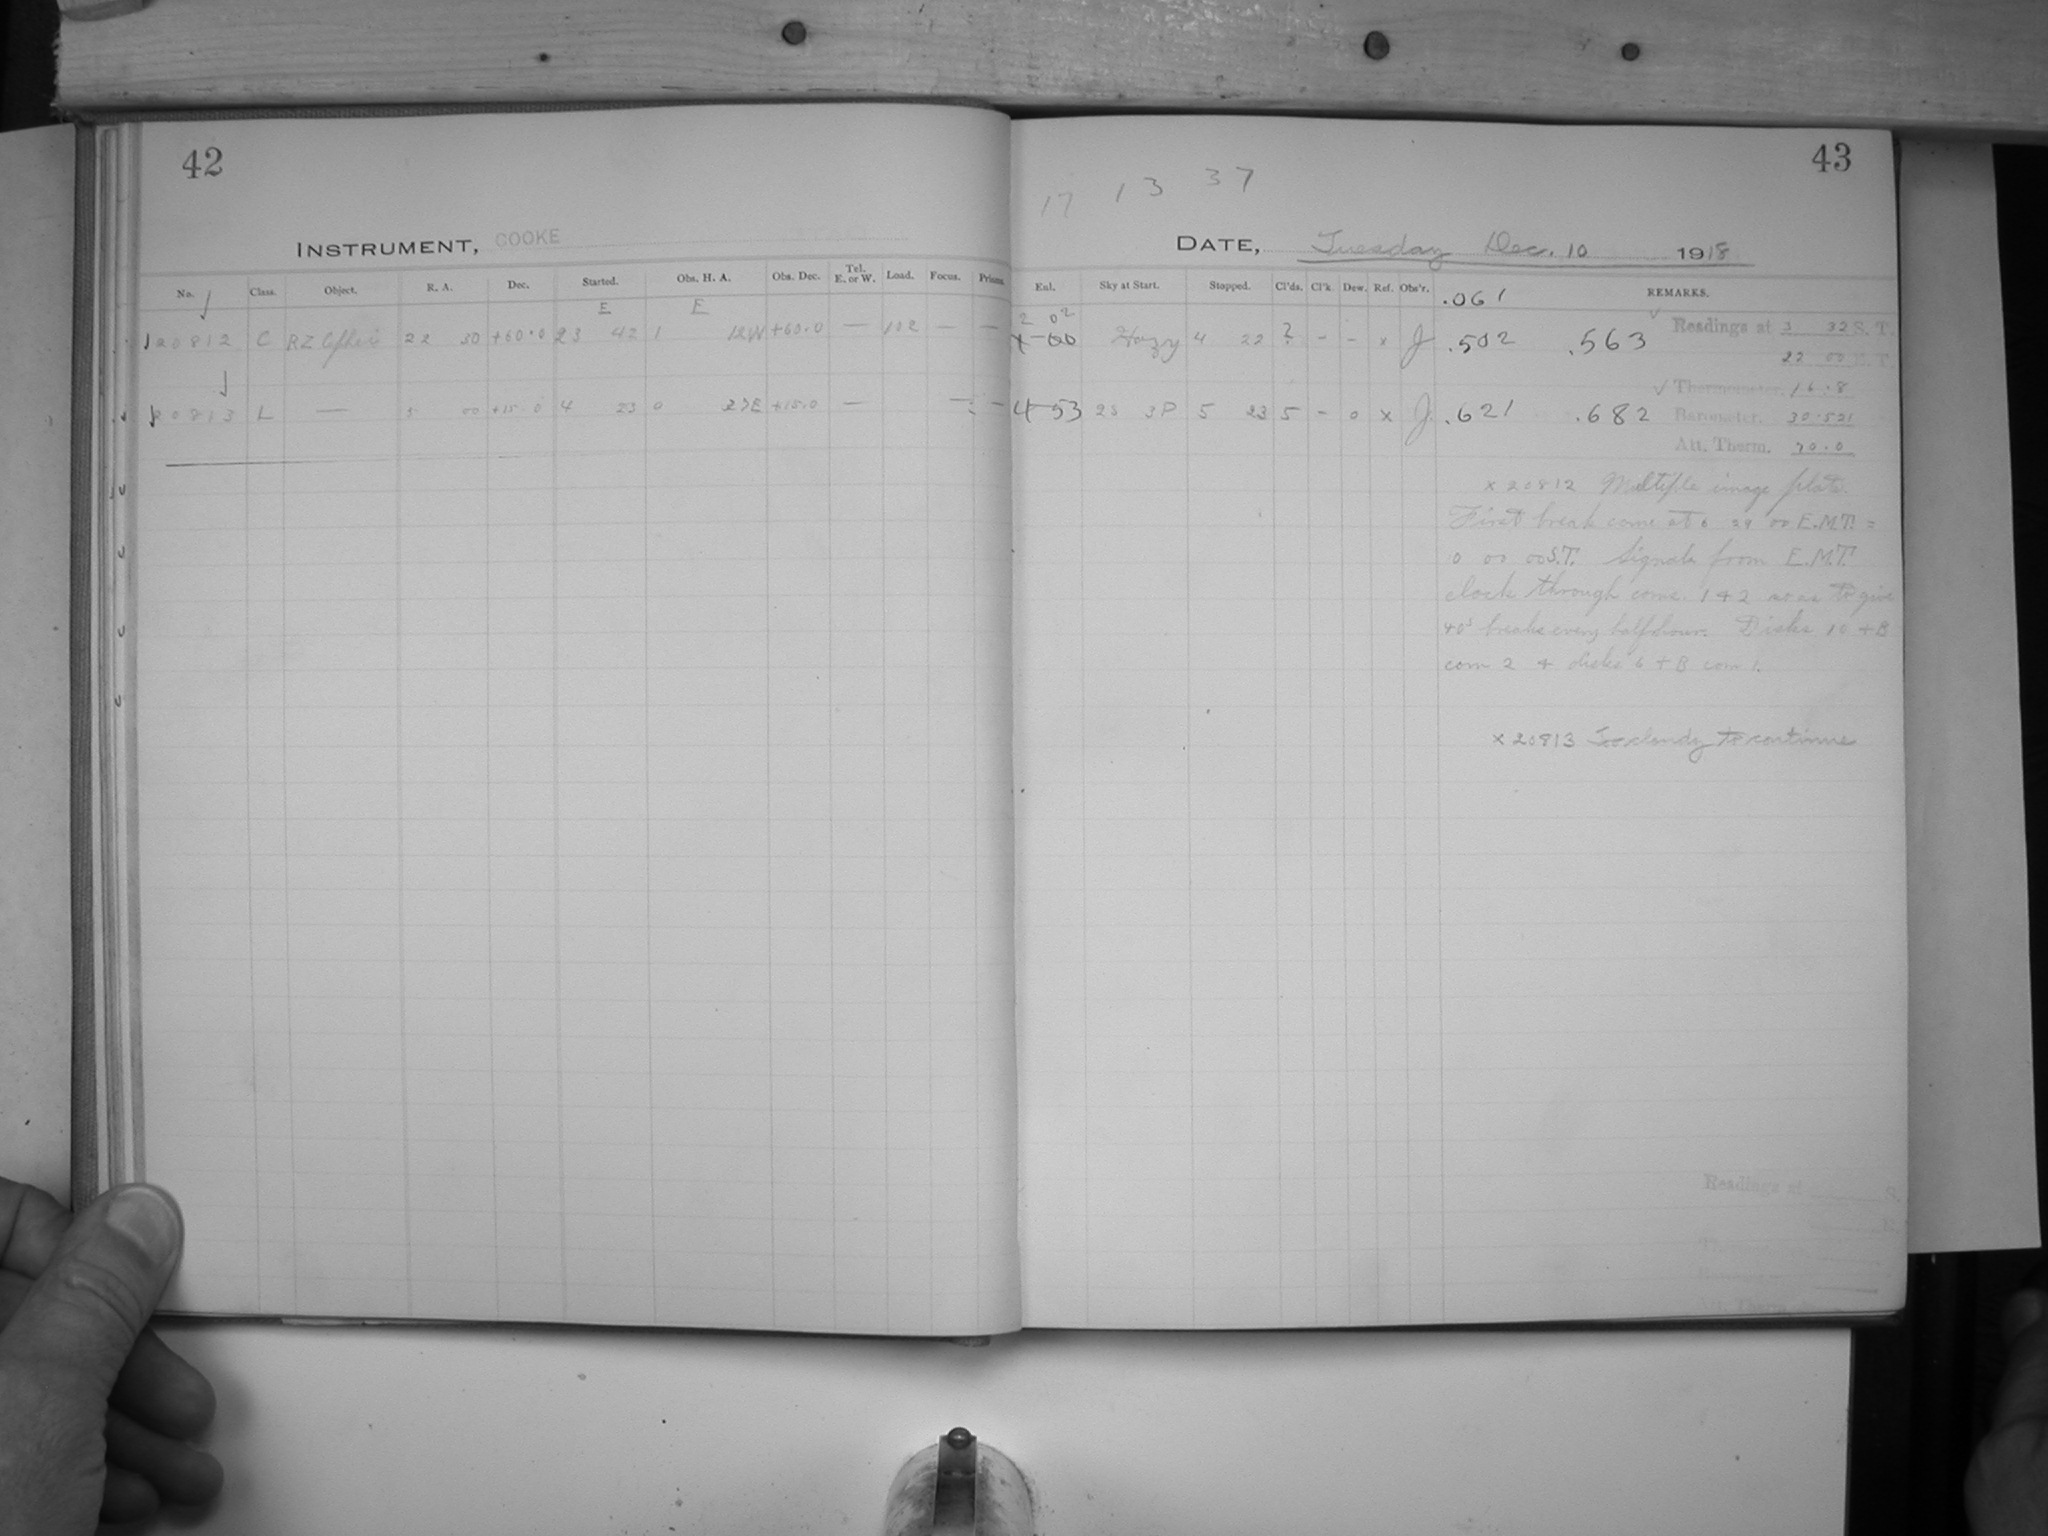 42
INSTRUMENT, COOKE
No. Class. Object. R. A. Dec. Started. Obs. H. A. Obs. Dec. Tel. E. or W. Load. Focus. Prisms.
E E
20812 C RZ Cephei 22 30 +60.0 23 42 1 12W +60.0 — 102 — —
20813 L — 5 00 +15.0 4 23 0 27E +15.0 — — —
43
17 13 37
DATE, Tuesday Dec. 10 1918
Ent. Sky at Start. Stopped. Cl'ds. Cl'k Dew. Ref. Obs'r. .061 REMARKS.
2 02
Hazy 4 22 ? - - x J .502 .563 Readings at 3 32 S. T.
22 00 E. T.
Thermometer. 16.8
4 53 2S 3P 5 23 5 - 0 x J. .621 .682 Barometer. 30.521
Att. Therm. 70.0
x 20812 Multiple image plate.
First break came at 6 29 00 E.M.T. =
0 00 00 S.T. Signals from E.M.T.
clock through coms. 1 & 2 so as to give
40s breaks every half hour. Disks 10 + B
com 2 & disks 6 + B com 1.
x 20813 Too cloudy to continue
Readings at